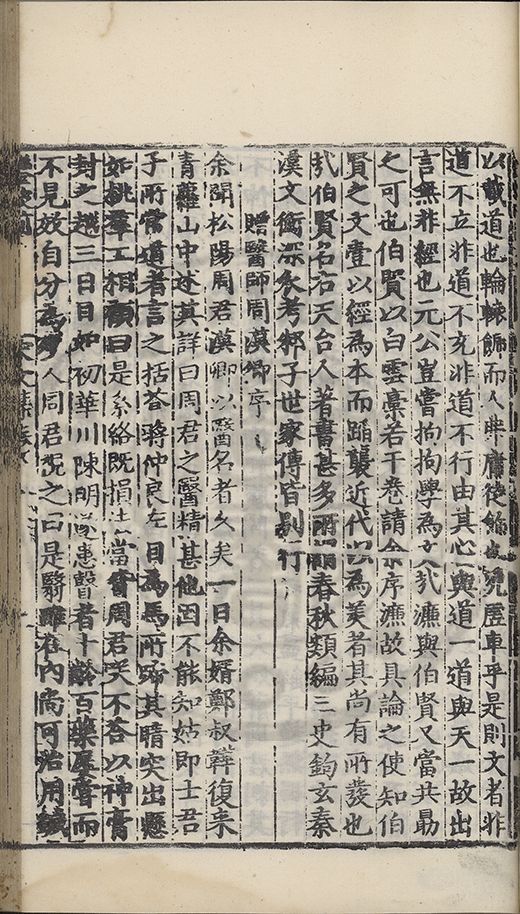 以載道也輪轅飾而人弗庸徒飾也況虛車乎是則文者非
道不立非道不充非道不行由其心與道一道與天一故出
言無非經也元公豈嘗拘拘學為文哉濂與伯賢又當共勗
之可也伯賢以白雲稾若干卷請余序濂故具論之使知伯
賢之文壹以經為本而蹈襲近代以為美者其尚有所發也
哉伯賢名右天台人著書甚多所謂春秋類編三史鈎玄秦
漢文衡深衣考邾子世家傳皆別行
贈醫師周漢卿序
余聞松陽周君漢卿以醫名者久矣一日余婿鄭叔韡復来
青蘿山中述其詳曰周君之醫精甚他固不能知姑即士君
子所常道者言之括蒼蔣仲良左目為馬所踶其睛突出懸
如桃羣工相顧曰是系絡既損法當瞽周君笑不荅以神膏
封之越三日目如初華川陳明遠患瞽者十齡百藥屢嘗而
不見效自分為人周君視之曰是翳雖在內尚可治用鍼